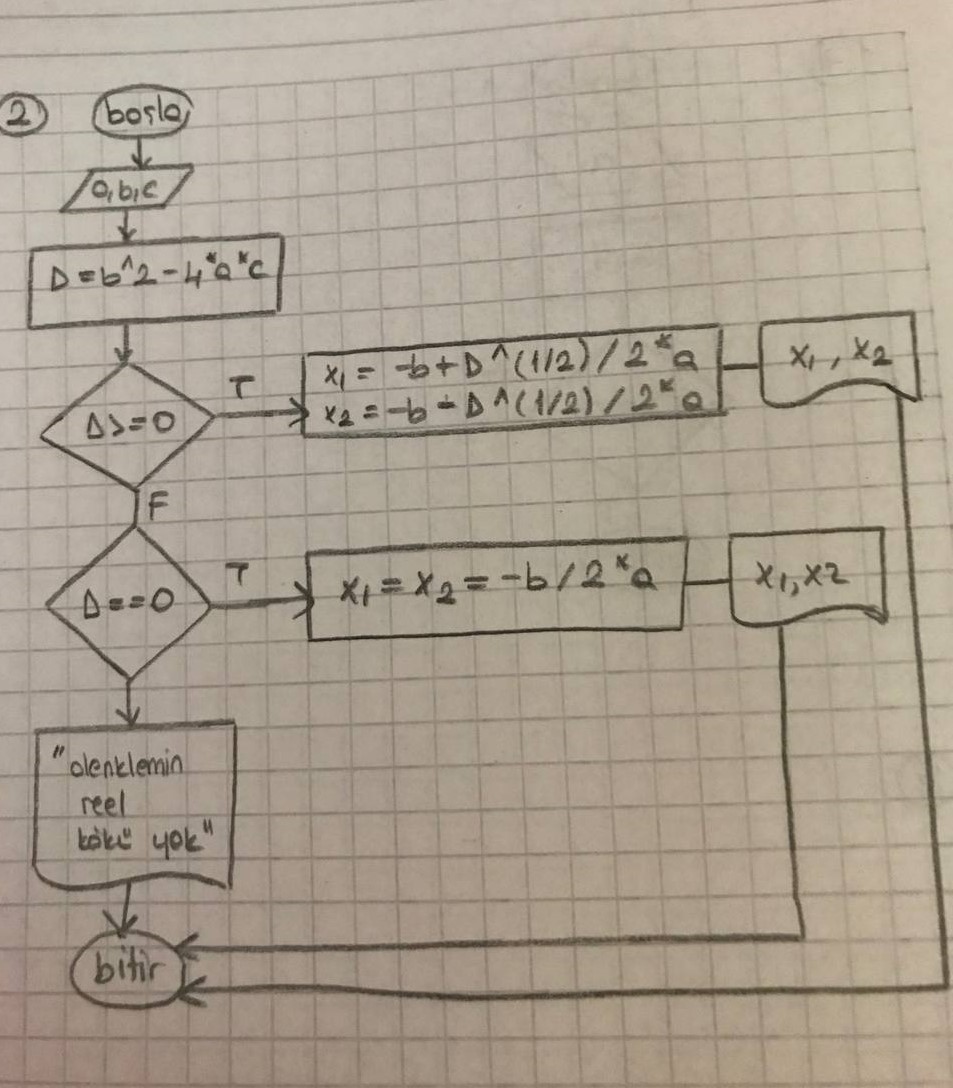 2
başla
a,b,c
D = b^2 - 4*a*c
Δ>=0
T
x₁ = -b + D^(1/2) / 2*a
x₂ = -b - D^(1/2) / 2*a
x₁, x₂
F
Δ==0
T
x₁ = x₂ = -b / 2*a
x₁, x2
"denklemin
reel
kökü yok"
bitir